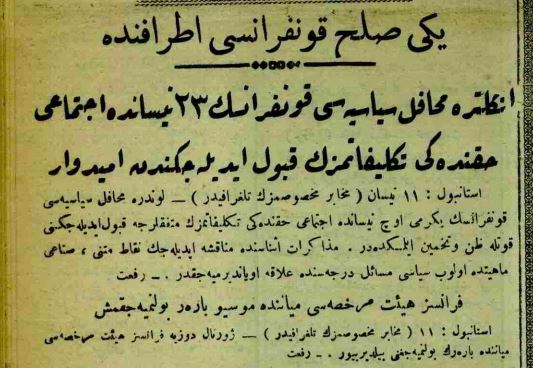 یكی صلح قونفرانسی اطرافنده
انكلتره محافل سیاسیه‌سی قونفرانسك ۲۳ نیسانده اجتماعی
حقنده‌كی تكلیفاتمزك قبول ایدیله‌جكندن امیدوار
استانبول : ۱۱ نیسان ( مخابر مخصوصمزك تلغرافیدر ) — لوندره محافل سیاسیه‌سی
قونفرانسك یكرمی اوچ نیسانده اجتماعی حقنده‌كی تكلیفاتمزك متفقلرجه قبول ایدیله‌جكنی
قوتله ظن وتخمین ایلمكده‌در . مذاكرات اثناسنده مناقشه ایدیله‌جك نقاط متنی ، صناعی
ماهیتده اولوب سیاسی مسائل درجه‌سنده علاقه اویاندیرمیه‌جقدر . — رفعت
فرانسز هیئت مرخصه‌سی میاننده موسیو باره‌ر بولنمیه‌جقمش
استانبول : ۱۱ ( مخابر مخصوصمزك تلغرافیدر ) — ژورنال دوزیه فرانسز هیئت مرخصه‌سی
میاننده باره‌رك بولنمیه‌جغنی بیلدیرییور . — رفعت